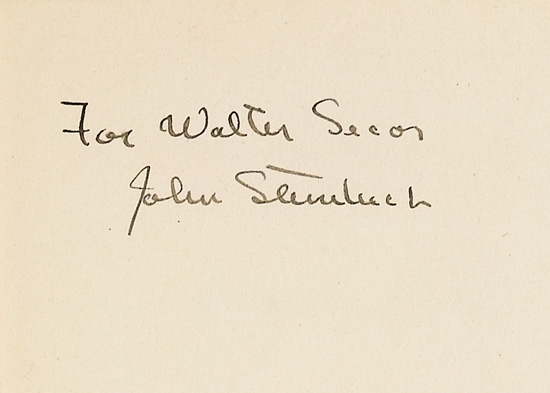 For Walter Secor
John Steinbeck